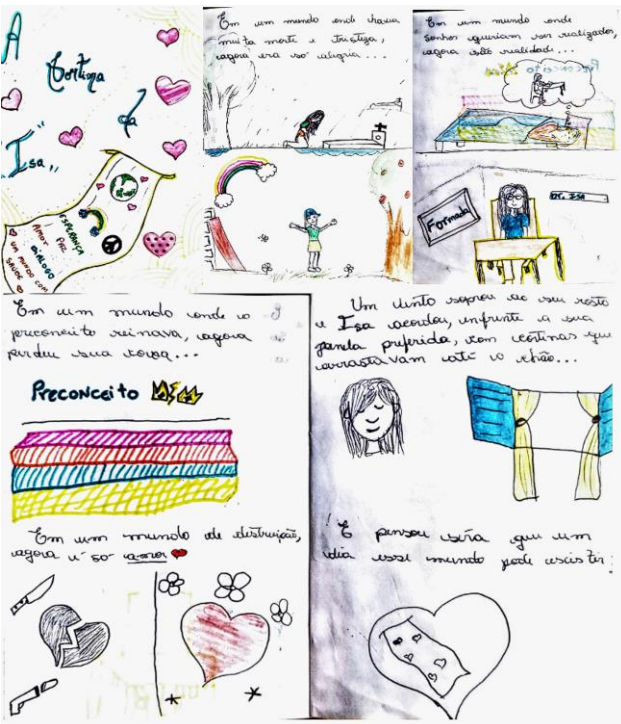 A
Cortina
da
Isa
ESPERANÇA
PAZ
AMOR
DIÁLOGO
UM MUNDO COM
SAÚDE
Em um mundo onde havia
muita morte e tristeza,
agora era só alegria...
Em um mundo onde
sonhos queriam ser realizados,
agora são realidade...
Formada
Dr. ISA
Em um mundo onde o
preconceito reinava, agora
perdeu sua coroa...
Preconceito
Em um mundo de destruição,
agora é só amor
Um vento soprou ao seu rosto
e Isa acordou, enfrente a sua
janela preferida, com cortinas que
arrastavam até o chão...
E pensou será que um
dia esse mundo pode existir